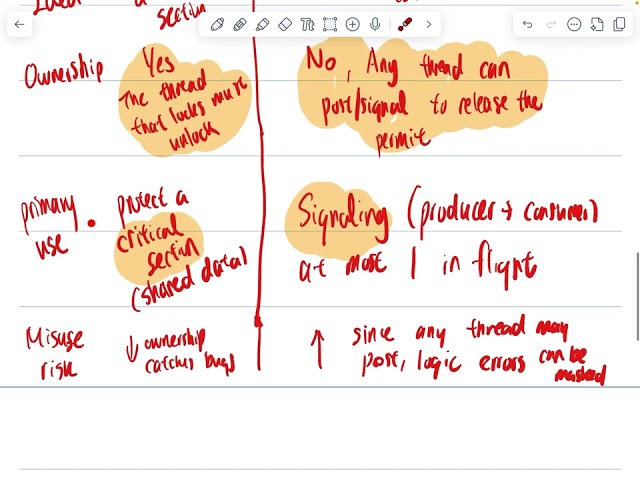 section
Ownership
Yes
The thread
that locks must
unlock
No, Any thread can
post/signal to release the
permit
primary
use
protect a
critical
section
(shared data)
Signaling (producer → consumer)
at most 1 in flight
Misuse
risk
↓ ownership
catches bugs
↑ since any thread may
post, logic errors can be
masked